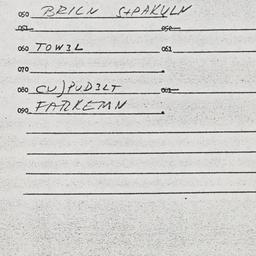 050 BRILN StPAKULN
051 052
060 TOW3L 061
070
080 CU)PUD3LT 081
090 FARKEMN